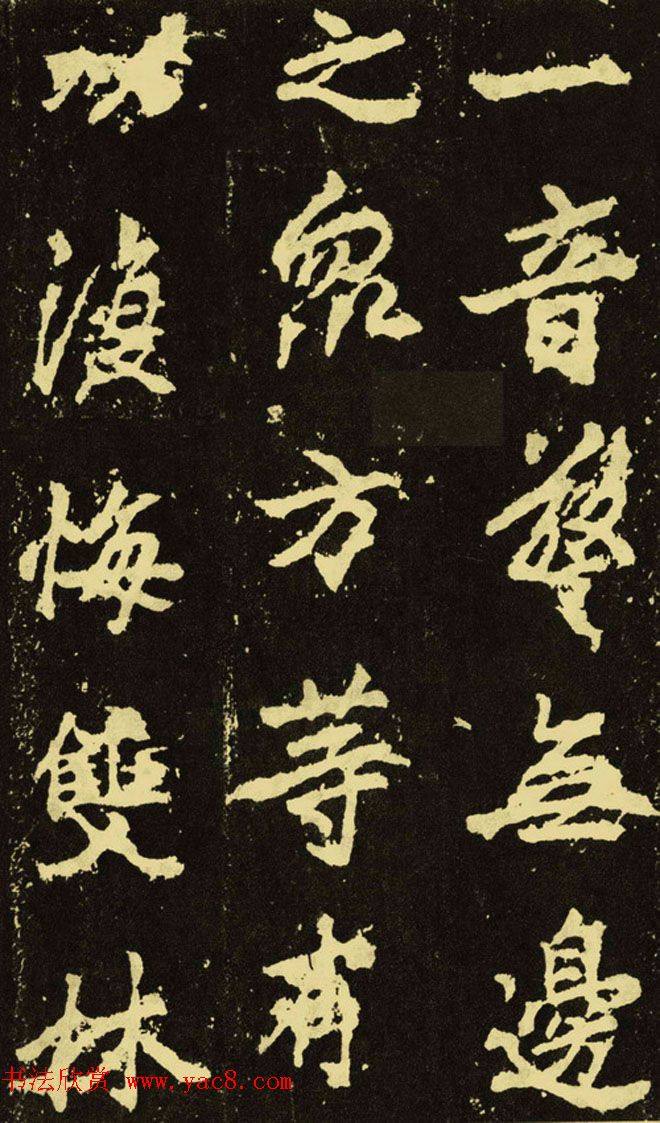 一音無邊
之眾方等有
悔雙林
书法欣赏 www.yac8.com